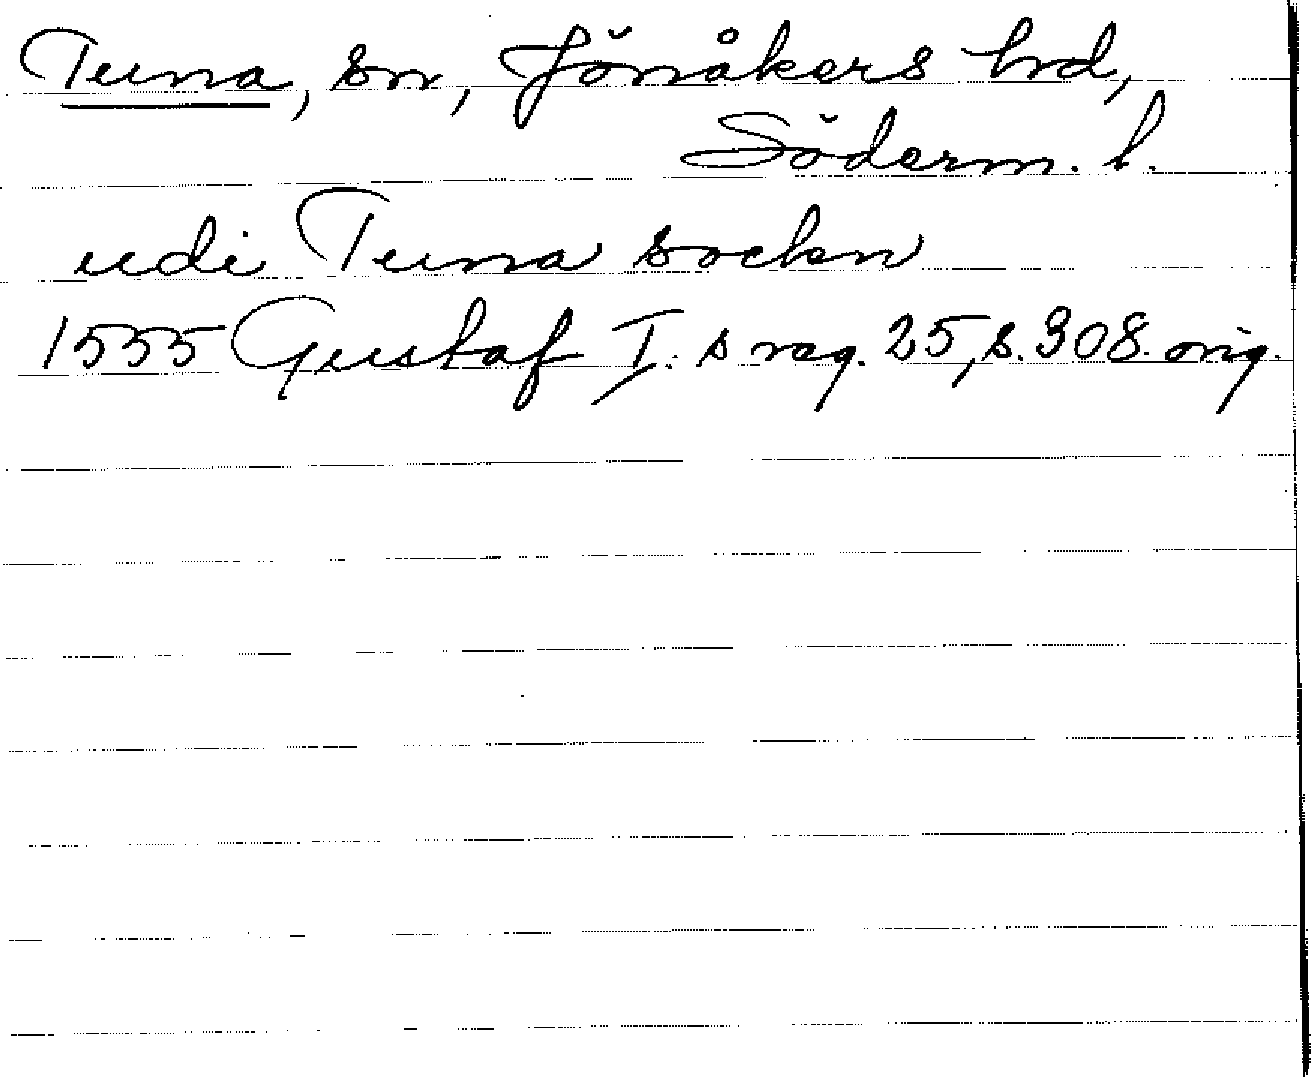 Tuna, sn, Jönåkers hrd,
Söderm. l.
udi Tuna sockn
1555 Gustaf I:s reg. 25, s. 308. orig.